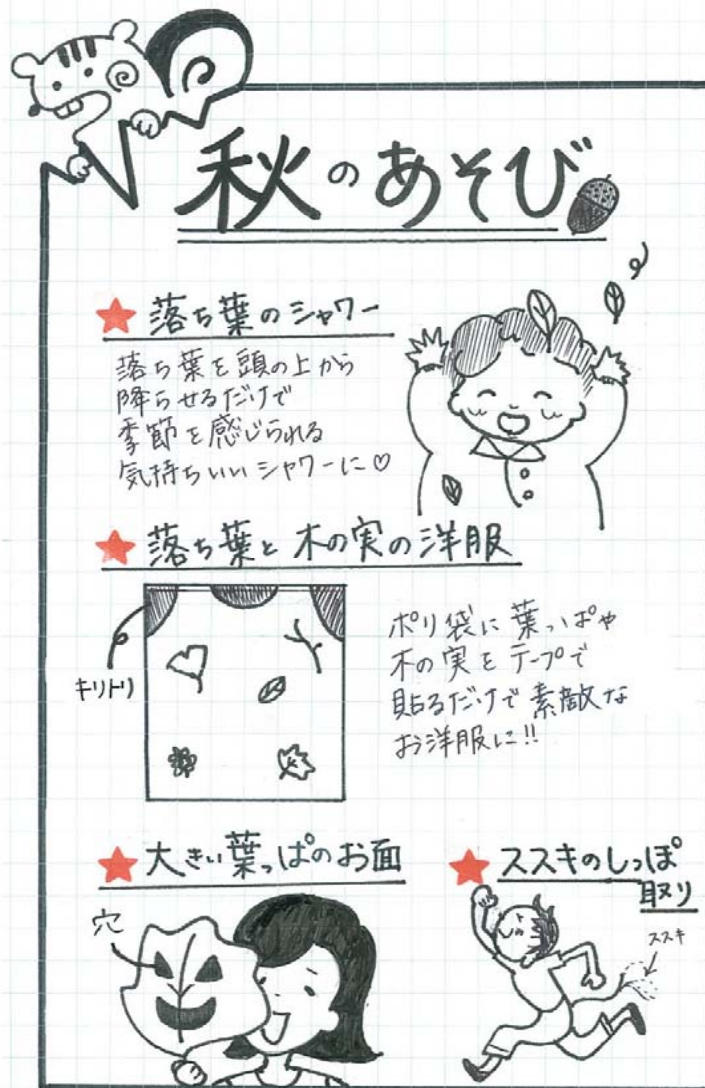 秋のあそび
落ち葉のシャワー
落ち葉を頭の上から
降らせるだけで
季節を感じられる
気持ちいいシャワーに♡
落ち葉と木の実の洋服
キリトリ
ポリ袋に葉っぱや
木の実をテープで
貼るだけで素敵な
お洋服に!!
大きい葉っぱのお面
穴
ススキのしっぽ
取り
ススキ